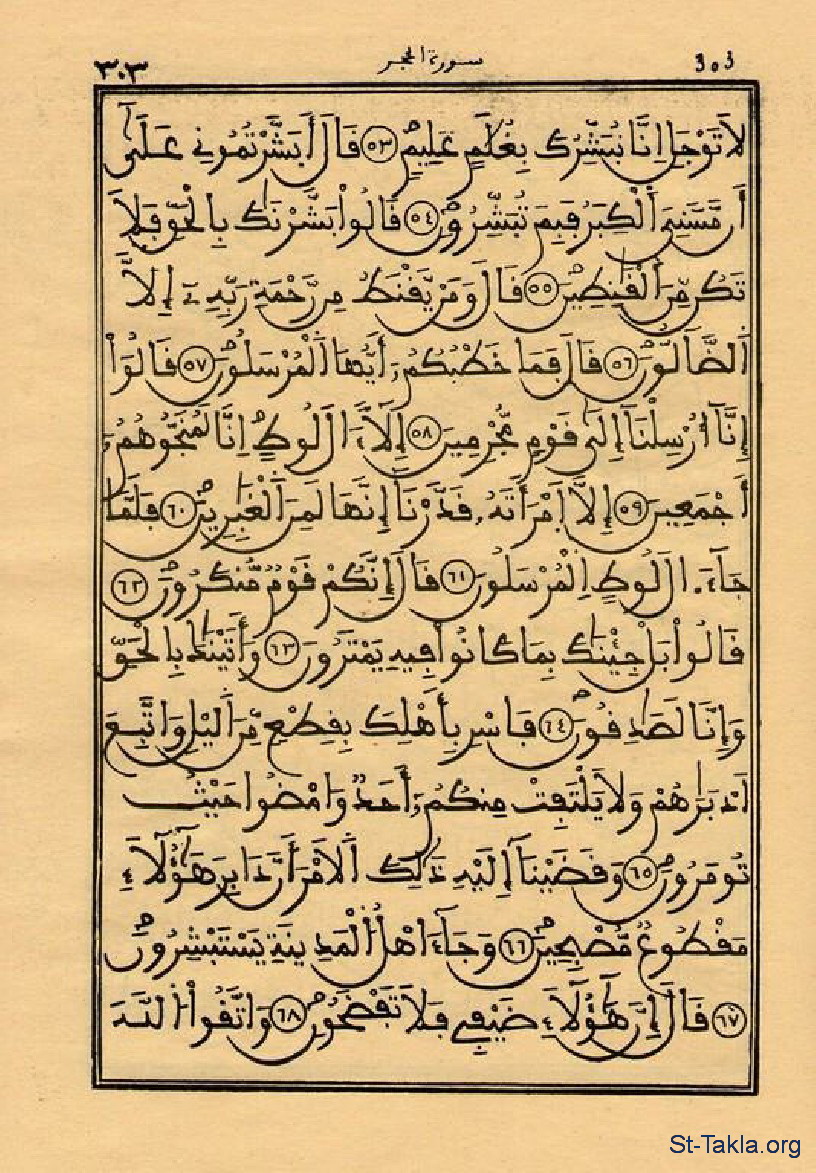 ٣٠٣ سورة الحجر 303
لَا تَوْجَلِ اِنَّا نُبَشِّرُكَ بِغُلَٰمٍ عَلِيمٍ ٥٣ قَالَ أَبَشَّرْتُمُونِے عَلَىٰٓ
أَن مَّسَّنِيَ اَلْكِبَرُ فَبِمَ تُبَشِّرُونِ ٥٤ قَالُواْ بَشَّرْنَٰكَ بِالْحَقِّ فَلَا
تَكُن مِّنَ اَلْقَٰنِطِينَ ٥٥ قَالَ وَمَنْ يَّقْنَطُ مِن رَّحْمَةِ رَبِّهِۦٓ إِلَّا
اَلضَّآلُّونَ ٥٦ قَالَ فَمَا خَطْبُكُمُۥٓ أَيُّهَا اَلْمُرْسَلُونَ ٥٧ قَالُوٓاْ
إِنَّآ أُرْسِلْنَآ إِلَىٰ قَوْمٍ مُّجْرِمِينَ ٥٨ إِلَّآ ءَالَ لُوطٍ اِنَّا لَمُنَجُّوهُمُۥٓ
أَجْمَعِينَ ٥٩ إِلَّا اَمْرَأَتَهُۥ قَدَّرْنَآ إِنَّهَا لَمِنَ اَلْغَٰبِرِينَ ٦٠ فَلَمَّا
جَآءَ ءَالَ لُوطٍ اِلْمُرْسَلُونَ ٦١ قَالَ إِنَّكُمْ قَوْمٌ مُّنكَرُونَ ٦٢
قَالُواْ بَلْ جِئْنَٰكَ بِمَا كَانُواْ فِيهِ يَمْتَرُونَ ٦٣ وَأَتَيْنَٰكَ بِالْحَقِّ
وَإِنَّا لَصَٰدِقُونَ ٦٤ فَاسْرِ بِأَهْلِكَ بِقِطْعٍ مِّنَ اَلَّيْلِ وَاتَّبِعَ
اَدْبَٰرَهُمْ وَلَا يَلْتَفِتْ مِنكُمُۥٓ أَحَدٌ وَامْضُواْ حَيْثُ
تُومَرُونَ ٦٥ وَقَضَيْنَآ إِلَيْهِ ذَٰلِكَ اَلَامْرَ أَنَّ دَابِرَ هَٰٓؤُلَآءِ
مَقْطُوعٌ مُّصْبِحِينَ ٦٦ وَجَآءَ اهْلُ اُلْمَدِينَةِ يَسْتَبْشِرُونَ
٦٧ قَالَ إِنَّ هَٰٓؤُلَآءِ ضَيْفِے فَلَا تَفْضَحُونِ ٦٨ وَاتَّقُواْ اُللَّهَ
St-Takla.org